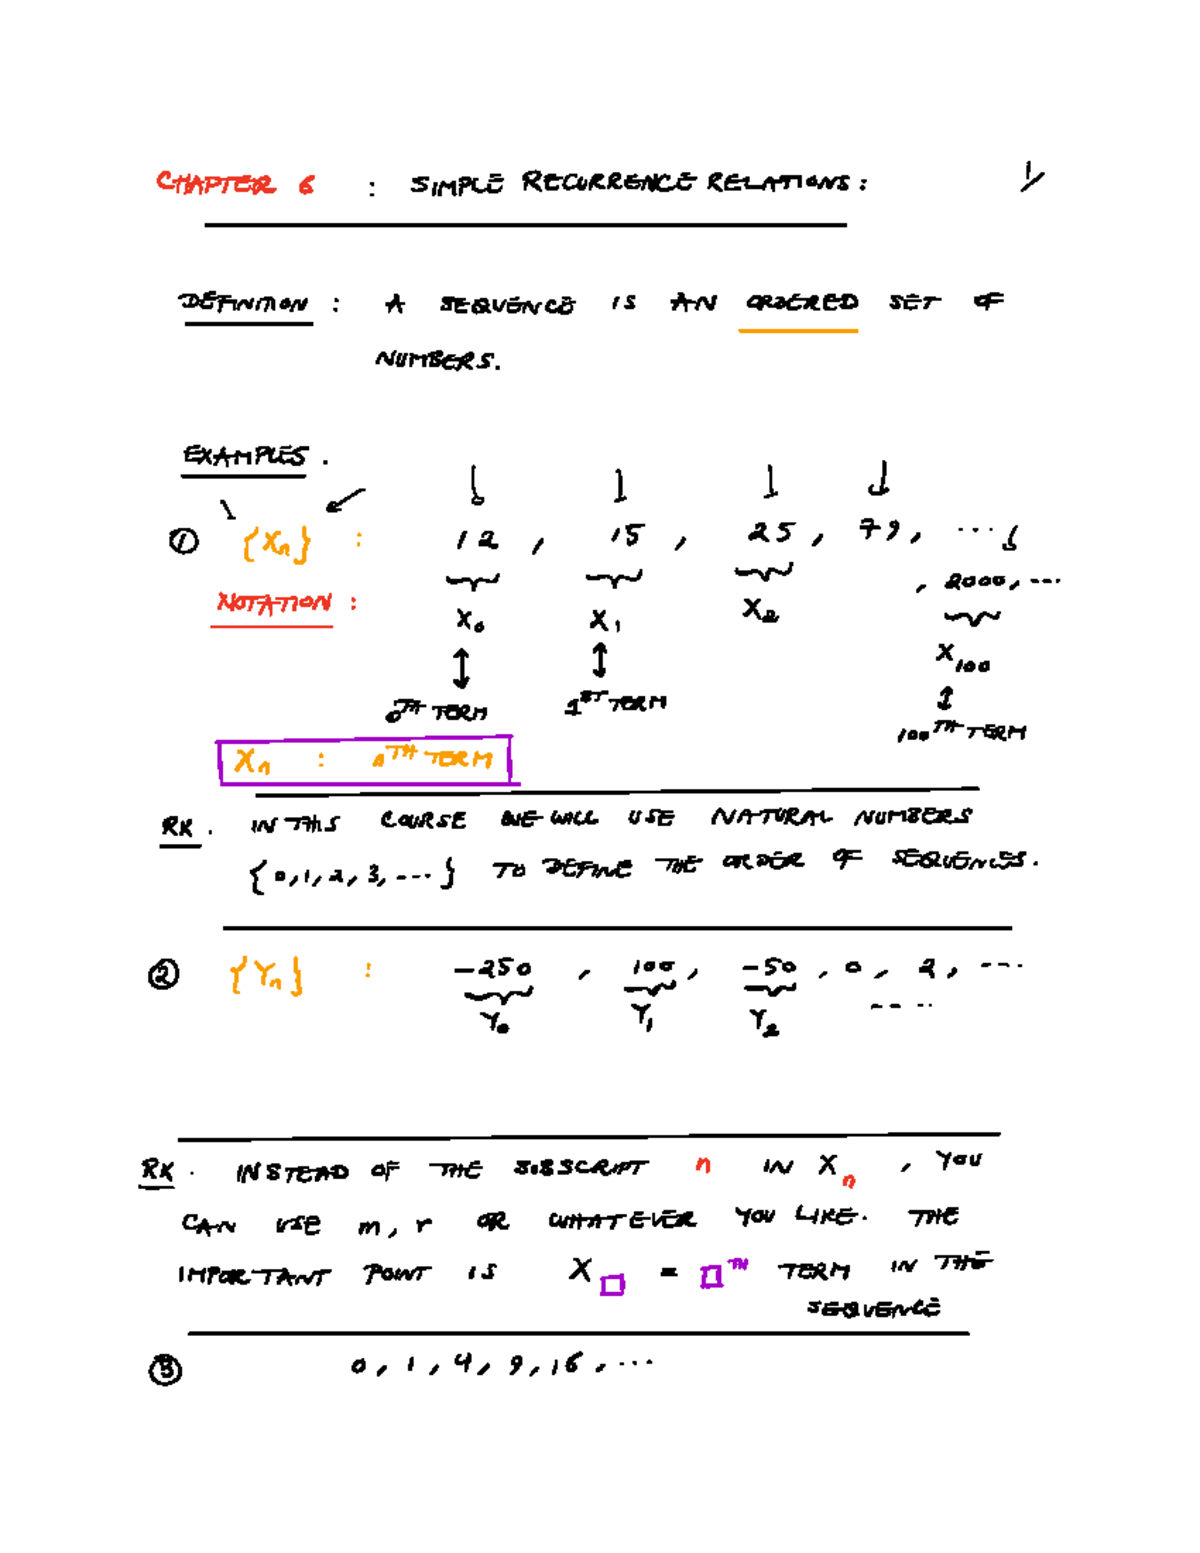 CHAPTER 6 : SIMPLE RECURRENCE RELATIONS: 1/
DEFINITION : A SEQUENCE IS AN ORDERED SET OF
NUMBERS.
EXAMPLES.
① {Xn} : 12 , 15 , 25 , 79, ...
, 2000, ...
NOTATION :
X0 X1 X2
X100
0TH TERM 1ST TERM
100TH TERM
Xn : nTH TERM
RK. IN THIS COURSE WE WILL USE NATURAL NUMBERS
{0,1,2,3,...} TO DEFINE THE ORDER OF SEQUENCES.
② {Yn} : -250 , 100 , -50 , 0 , 2 , ...
Y0 Y1 Y2
RK. INSTEAD OF THE SUBSCRIPT n IN Xn , YOU
CAN USE m, r OR WHATEVER YOU LIKE. THE
IMPORTANT POINT IS X□ = □TH TERM IN THE
SEQUENCE
③ 0 , 1 , 4 , 9 , 16 , ...